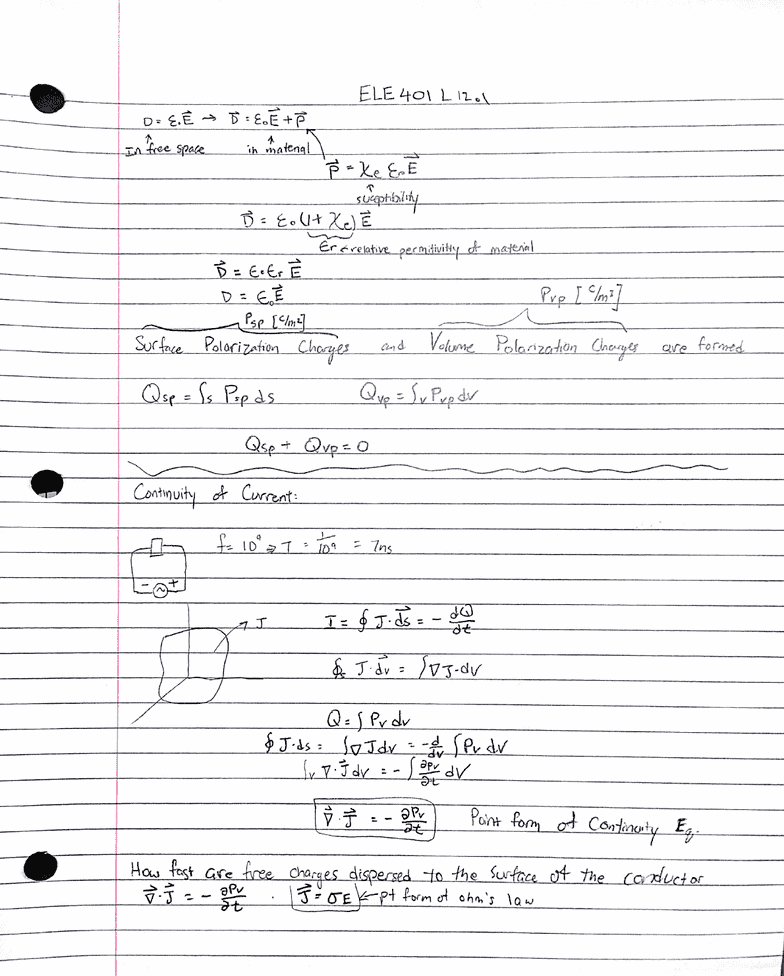 ELE 401 L 12.1
D = ε₀E⃗ → D⃗ = ε₀E⃗ + P⃗
In free space in material
P⃗ = χe ε₀E⃗
suceptibility
D⃗ = ε₀(1 + χe)E⃗
εr ← relative permitivitiy of material
D⃗ = ε₀εr E⃗
D = ε₀E⃗
Psp [C/m²] Pvp [C/m³]
Surface Polarization Charges and Volume Polarization Charges are formed
Qsp = ∫s Psp ds Qvp = ∫v Pvp dv
Qsp + Qvp = 0
Continuity of Current:
f = 10⁹ ⇒ T = 1/10⁹ = 7ns
- +
J I = ∮ J·ds⃗ = - dQ/dt
∮ J·dv⃗ = ∫∇J·dv
Q = ∫ Pv dv
∮ J·ds = ∫∇Jdv = -d/dv ∫ Pv dv
∫v ∇·J⃗ dv = - ∫ ∂Pv/∂t dv
∇⃗·J⃗ = - ∂Pv/∂t Point form of Continuity Eq.
How fast are free charges dispersed to the surface of the conductor
∇⃗·J⃗ = - ∂Pv/∂t . J⃗ = σE ← pt form of ohm's law